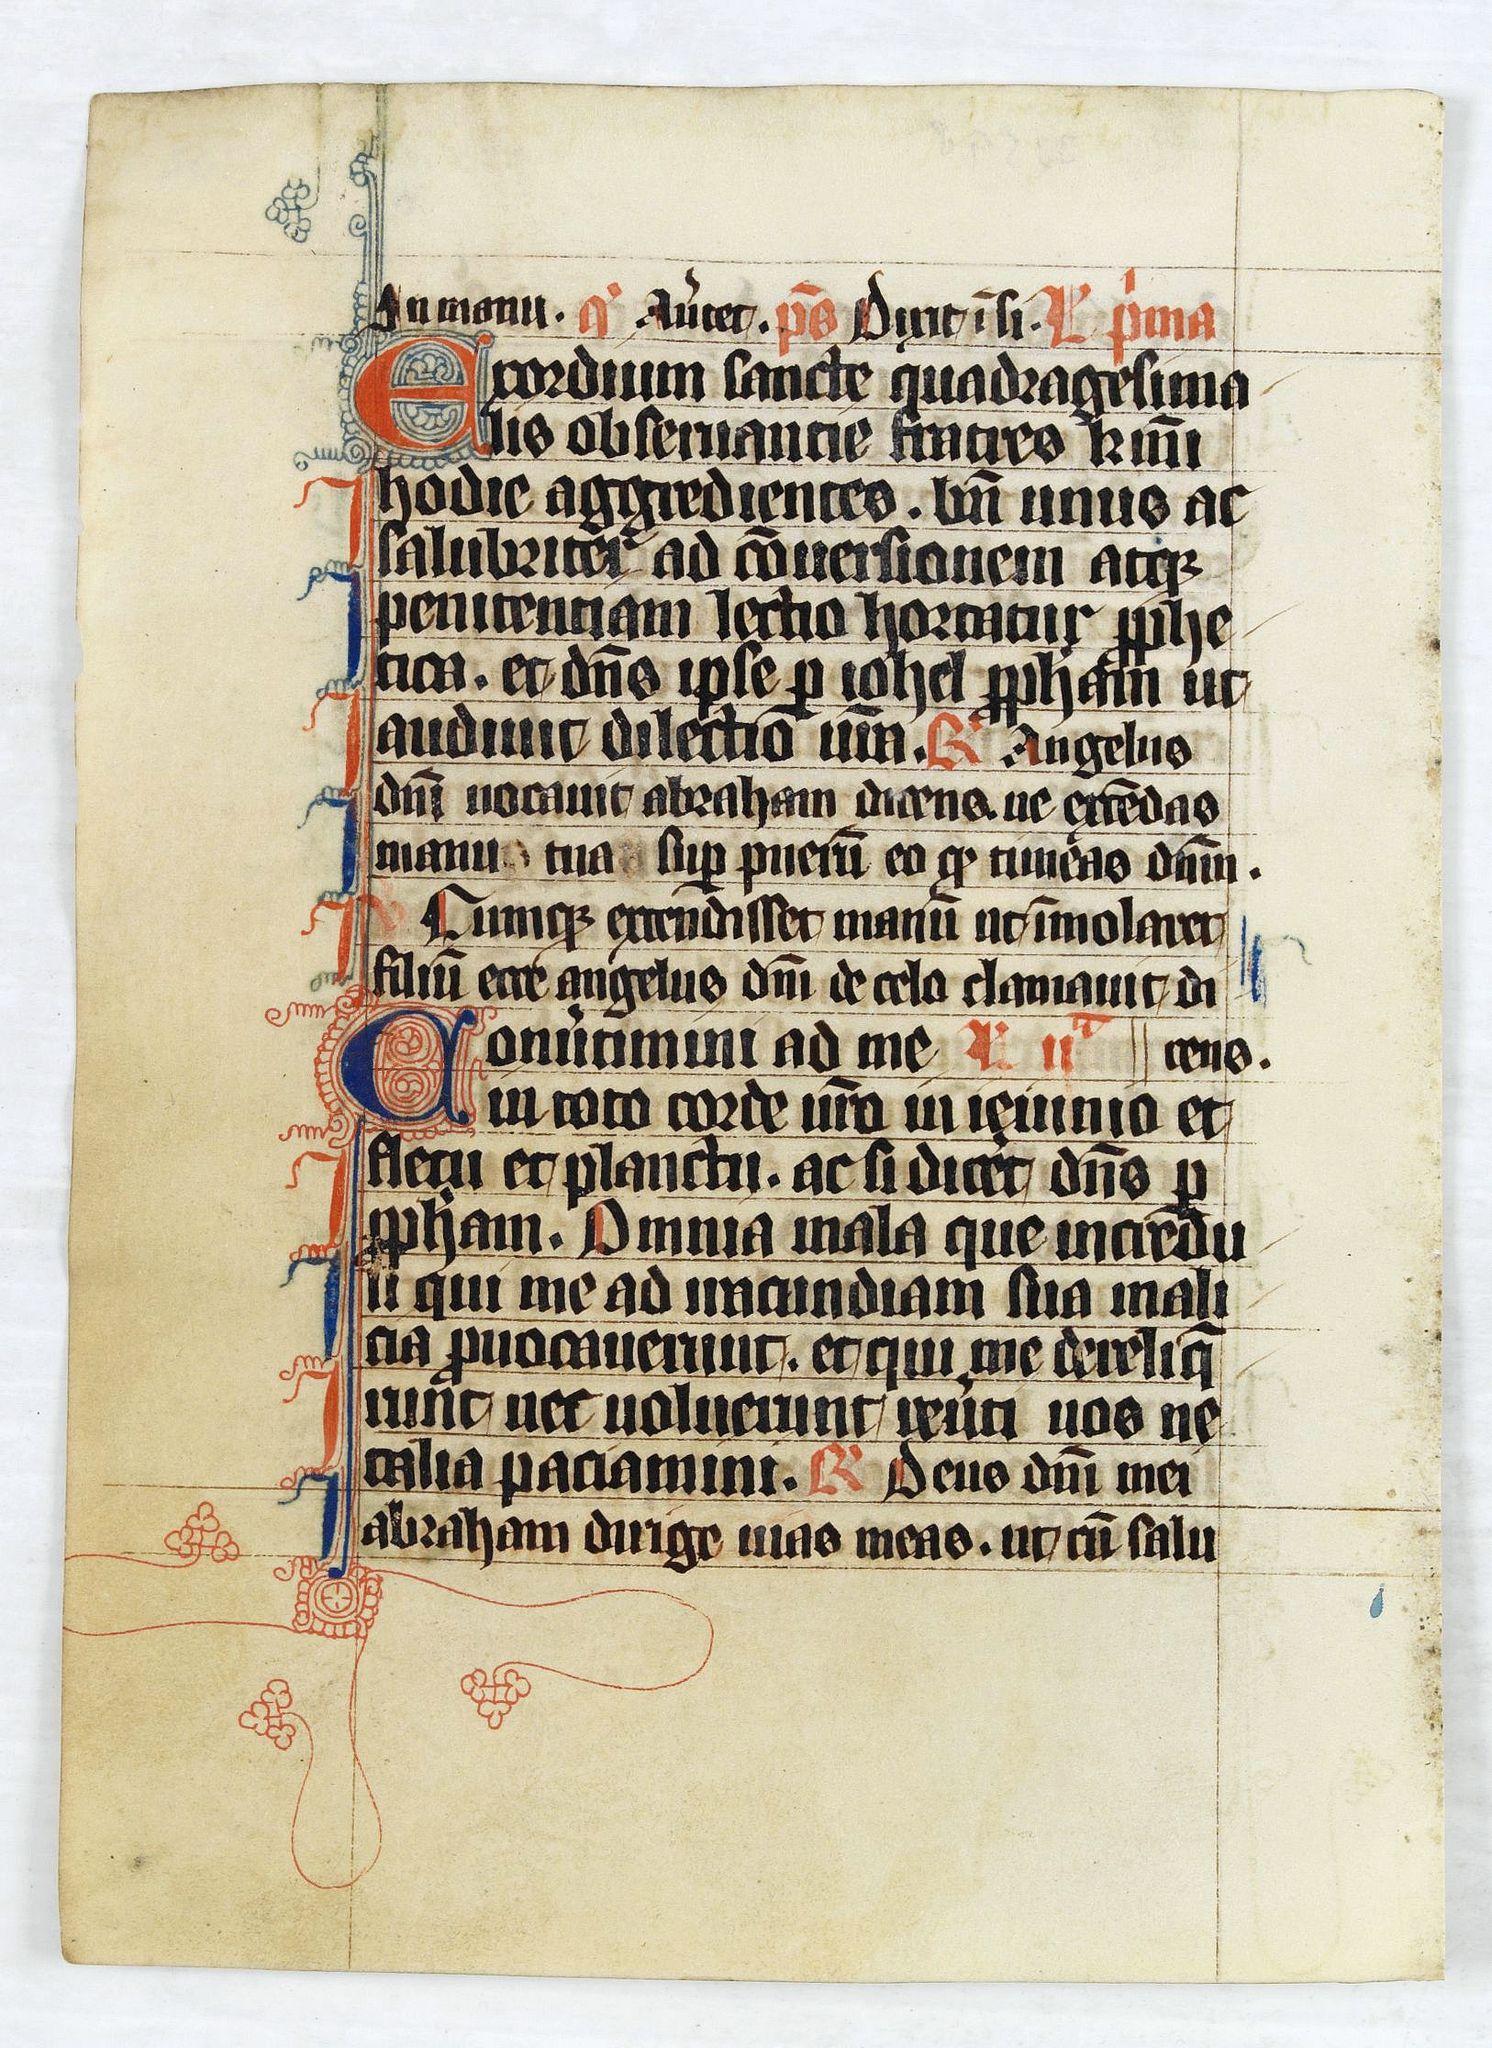 In manu. a͛ Au̾tet. ps̄ Dixit īsi. L' p̾ma
Excordium sancte quadragesima
lis obseruantie fratres k̄rimi
hodie aggredientes. bn̄ unus ac
salubriter ad cōuersionem atqꝫ
penitentiam lectio hortatur ꝓphe
tica. et dn̄s ipse ꝑ iohel ꝓpham ut
audiuit dilectio ur̄a. R̾ Angelus
dn̄i uocauit abraham dicens. ne extēdas
manu tua suꝑ puerū eo ꝙ timeas dn̄m.
V Cumqꝫ extendisset manū ut īmolaret
filiū ecce angelus dn̄i de celo clamauit di
Conu̾timini ad me L' ijᵃ cens.
in toto corde ur̄o in ieiunio et
fletu et planctu. ac si dicet dn̄s ꝑ
ꝓpham. Omnia mala que incredu
li qui me ad iracundiam sua mali
cia ꝓuocauerunt. et qui me dereliq̄
runt nec uoluerunt reu̾ti uos ne
talia paciamini. R̾ Deus dn̄i mei
abraham dirige uias meas. ut cū salu